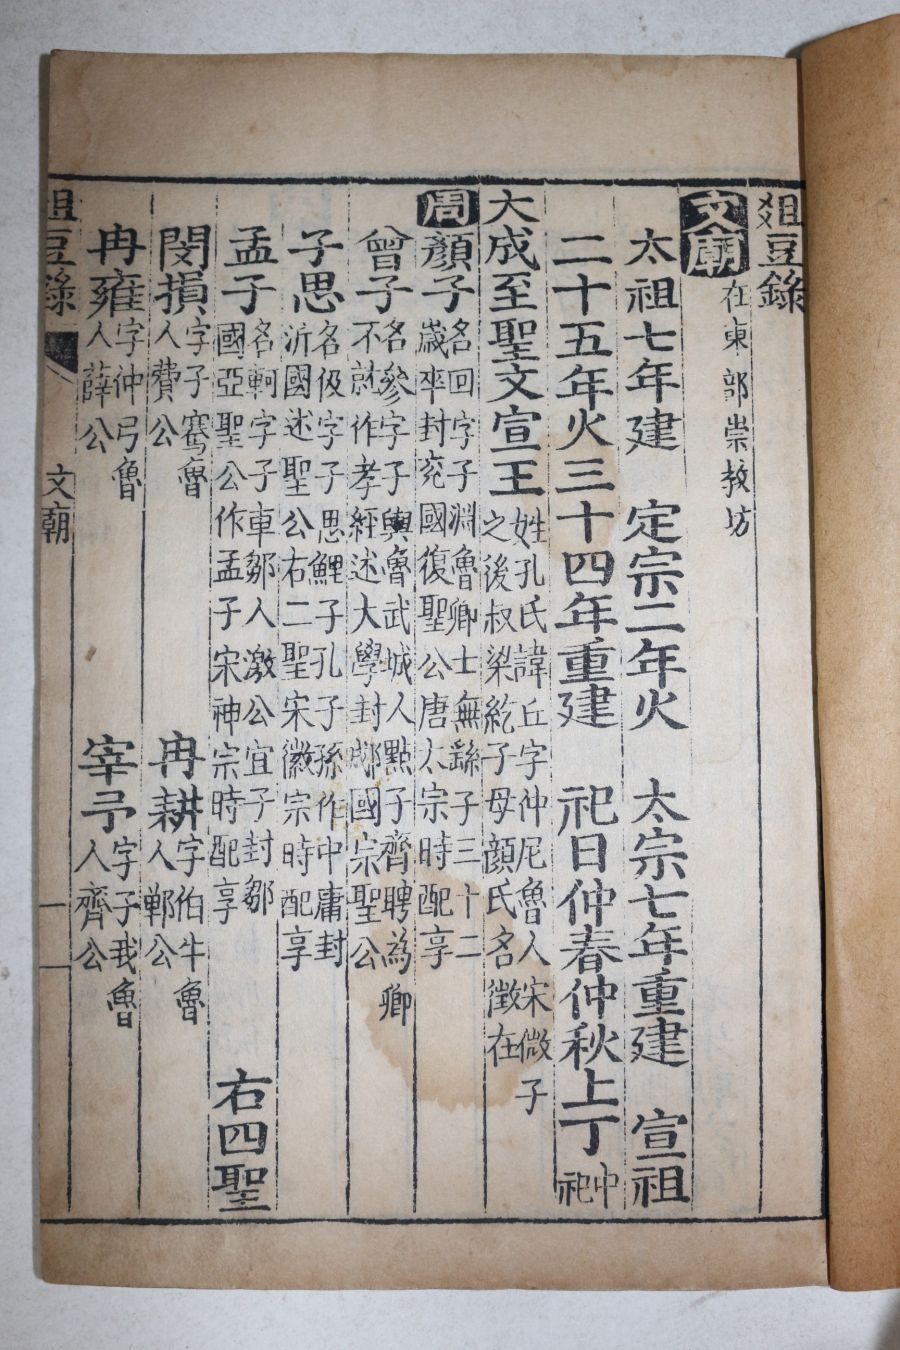 俎豆錄
文廟 在東部崇教坊
太祖七年建 定宗二年火 太宗七年重建 宣祖
二十五年火三十四年重建 祀日仲春仲秋上丁 中祀
大成至聖文宣王 姓孔氏諱丘字仲尼魯人宋微子
之後叔梁紇子母顔氏名徵在
周 顔子 名回字子淵魯卿士無繇子三十二
歲卒封兗國復聖公唐太宗時配享
曾子 名參字子輿魯武城人點子齊聘爲卿
不就作孝經述大學封郕國宗聖公
子思 名伋字子思鯉子孔子孫作中庸封
沂國述聖公右二聖宋徽宗時配享
孟子 名軻字子車鄒人激公宜子封鄒
國亞聖公作孟子宋神宗時配享 右四聖
閔損 字子騫魯
人費公
冉耕 字伯牛魯
人鄆公
冉雍 字仲弓魯
人薛公
宰予 字子我魯
人齊公
俎豆錄 文廟 一